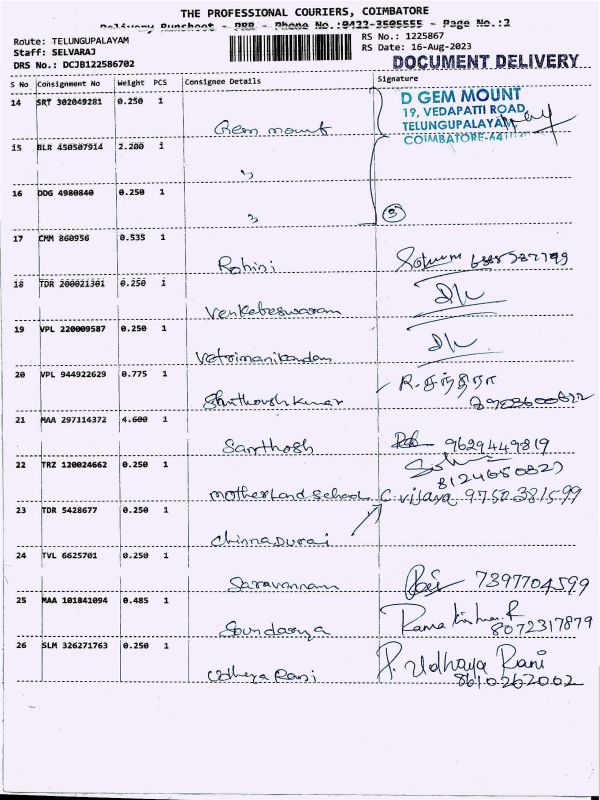 THE PROFESSIONAL COURIERS, COIMBATORE
Delivery Runsheet - PRR - Phone No.:0422-3505555 - Page No.:2
Route: TELUNGUPALAYAM
Staff: SELVARAJ
DRS No.: DCJB122586702
RS No.: 1225867
RS Date: 16-Aug-2023
DOCUMENT DELIVERY
S No Consignment No Weight PCS Consignee Details Signature
14 SRT 302049281 0.250 1 Gem mount
D GEM MOUNT
19, VEDAPATTI ROAD,
TELUNGUPALAYAM,
COIMBATORE-641
15 BLR 450507914 2.200 1 "
16 DDG 4980840 0.250 1 " 3
17 CMM 860956 0.535 1 Rohini
18 TDR 200021301 0.250 1 Venkateswaran D/L
19 VPL 220009587 0.250 1 Vetrimanikandan D/L
20 VPL 944922629 0.775 1 Shnthoush kumar R. சந்திரா
21 MAA 297114372 4.600 1 Santhosh 9629449819
22 TRZ 120024662 0.250 1 motherland School C. vijaya 9750381599
8124650827
23 TDR 5428677 0.250 1 chinnadurai
24 TVL 6625701 0.250 1 Saravanan 7397704599
25 MAA 101841094 0.485 1 Soundarya Rama krishna. R
8072317879
26 SLM 326271763 0.250 1 Udhaya Rani P. Udhaya Rani
8610262002